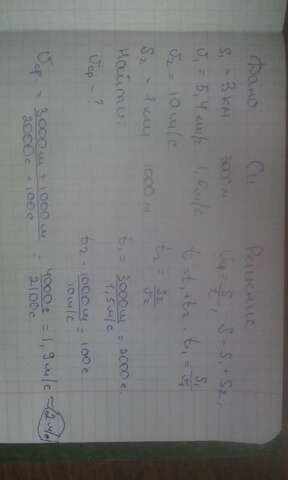 Дано Си Решение
S₁ = 3 км 3000 м Vср = S/t, S = S₁ + S₂,
V₁ = 5,4 км/ч 1,5 м/с t = t₁ + t₂, t₁ = S₁/V₁
V₂ = 10 м/с t₂ = S₂/V₂
S₂ = 1 км 1000 м
Найти: t₁ = 3000м/1,5м/с = 2000 с.
Vср - ? t₂ = 1000м/10м/с = 100 с
Vср = 3000м + 1000м/2000с + 100с = 4000с/2100с = 1,9 м/с ≈ 2 м/с